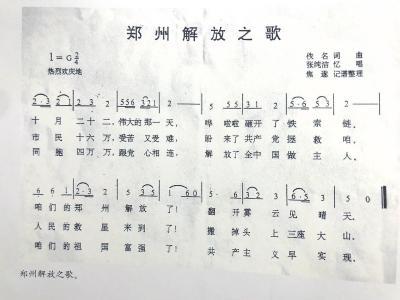 郑州解放之歌
1=G 2/4
热烈欢庆地
佚名 词 曲
张纯洁 忆 唱
焦逢 记谱整理
2·3 2 2 2·3 2 556 321 2 — 5 555 5 3 2 5·6 53 2 —
十月 二十二, 伟大的那一天, 哗 啦啦砸开了铁索链。
市民 十六万, 受苦又受难, 盼来了共产党拯救咱。
同胞 四万万, 跟党心相连, 解放了全中国做主人。
咱们的郑州解放了! 翻开雾云见晴天。
人民的救星来到了! 搬掉头上三座大山。
咱们的祖国富强了! 共产主义早实现。
郑州解放之歌。